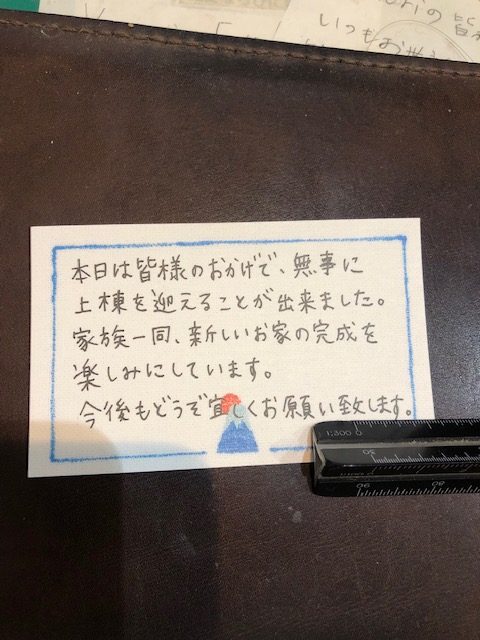 の皆
いつもお世
本日は皆様のおかげで、無事に
上棟を迎えることが出来ました。
家族一同、新しいお家の完成を
楽しみにしています。
今後もどうぞ宜しくお願い致します。
1,300 0